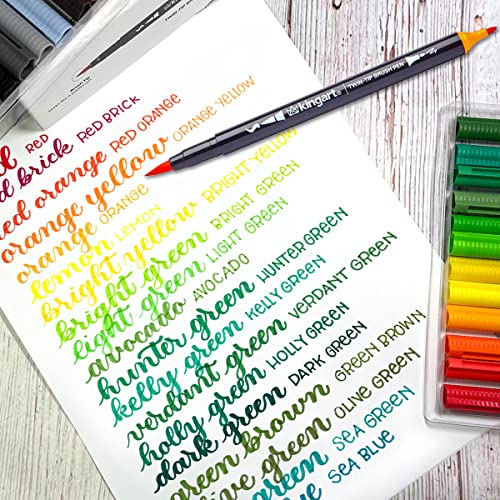 kingart® TWIN-TIP BRUSH PEN
RED
d brick RED BRICK
red orange RED ORANGE
orange yellow ORANGE YELLOW
orange ORANGE
lemon LEMON
bright yellow BRIGHT YELLOW
bright green BRIGHT GREEN
light green LIGHT GREEN
avocado AVOCADO
hunter green HUNTER GREEN
kelly green KELLY GREEN
verdant green VERDANT GREEN
holly green HOLLY GREEN
dark green DARK GREEN
green brown GREEN BROWN
live green OLIVE GREEN
green SEA GREEN
ue SEA BLUE